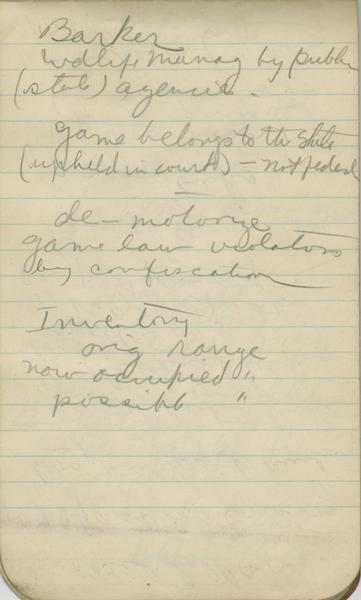 Barker
Wdlife Manag by public
(state) agencies.
Game belongs to the State
(upheld in courts) – not federal
—
de-motorize
game law violators
by confiscation
Inventory
orig range
now occupied "
possible "